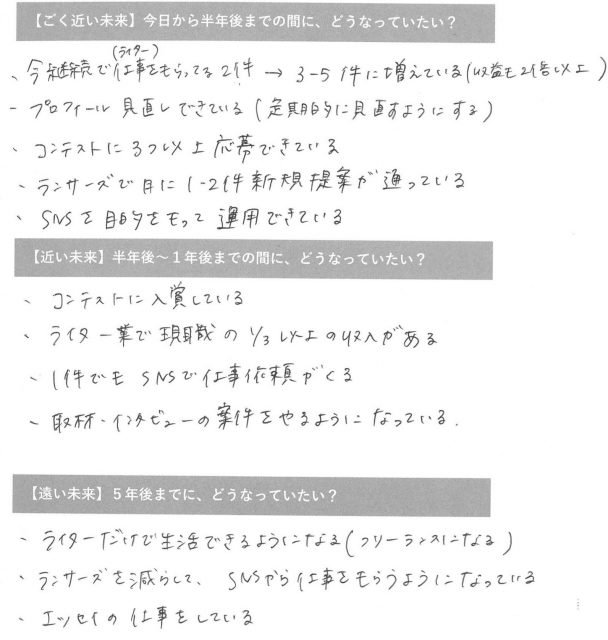 【ごく近い未来】今日から半年後までの間に、どうなっていたい？
(ライター)
、今継続で仕事をもらってる2件 → 3-5件に増えている(収益も2倍以上)
- プロフィール見直しできている(定期的に見直すようにする)
、コンテストに3つ以上応募できている
、ランサーズで月に1-2件新規提案が通っている
、SNSを目的をもって運用できている
【近い未来】半年後～１年後までの間に、どうなっていたい？
、コンテストに入賞している
、ライター業で現職の1/3以上の収入がある
、1件でもSNSで仕事依頼がくる
、取材・インタビューの案件をやるようになっている.
【遠い未来】５年後までに、どうなっていたい？
、ライターだけで生活できるようになる(フリーランスになる)
、ランサーズを減らして、SNSから仕事をもらうようになっている
、エッセイの仕事をしている